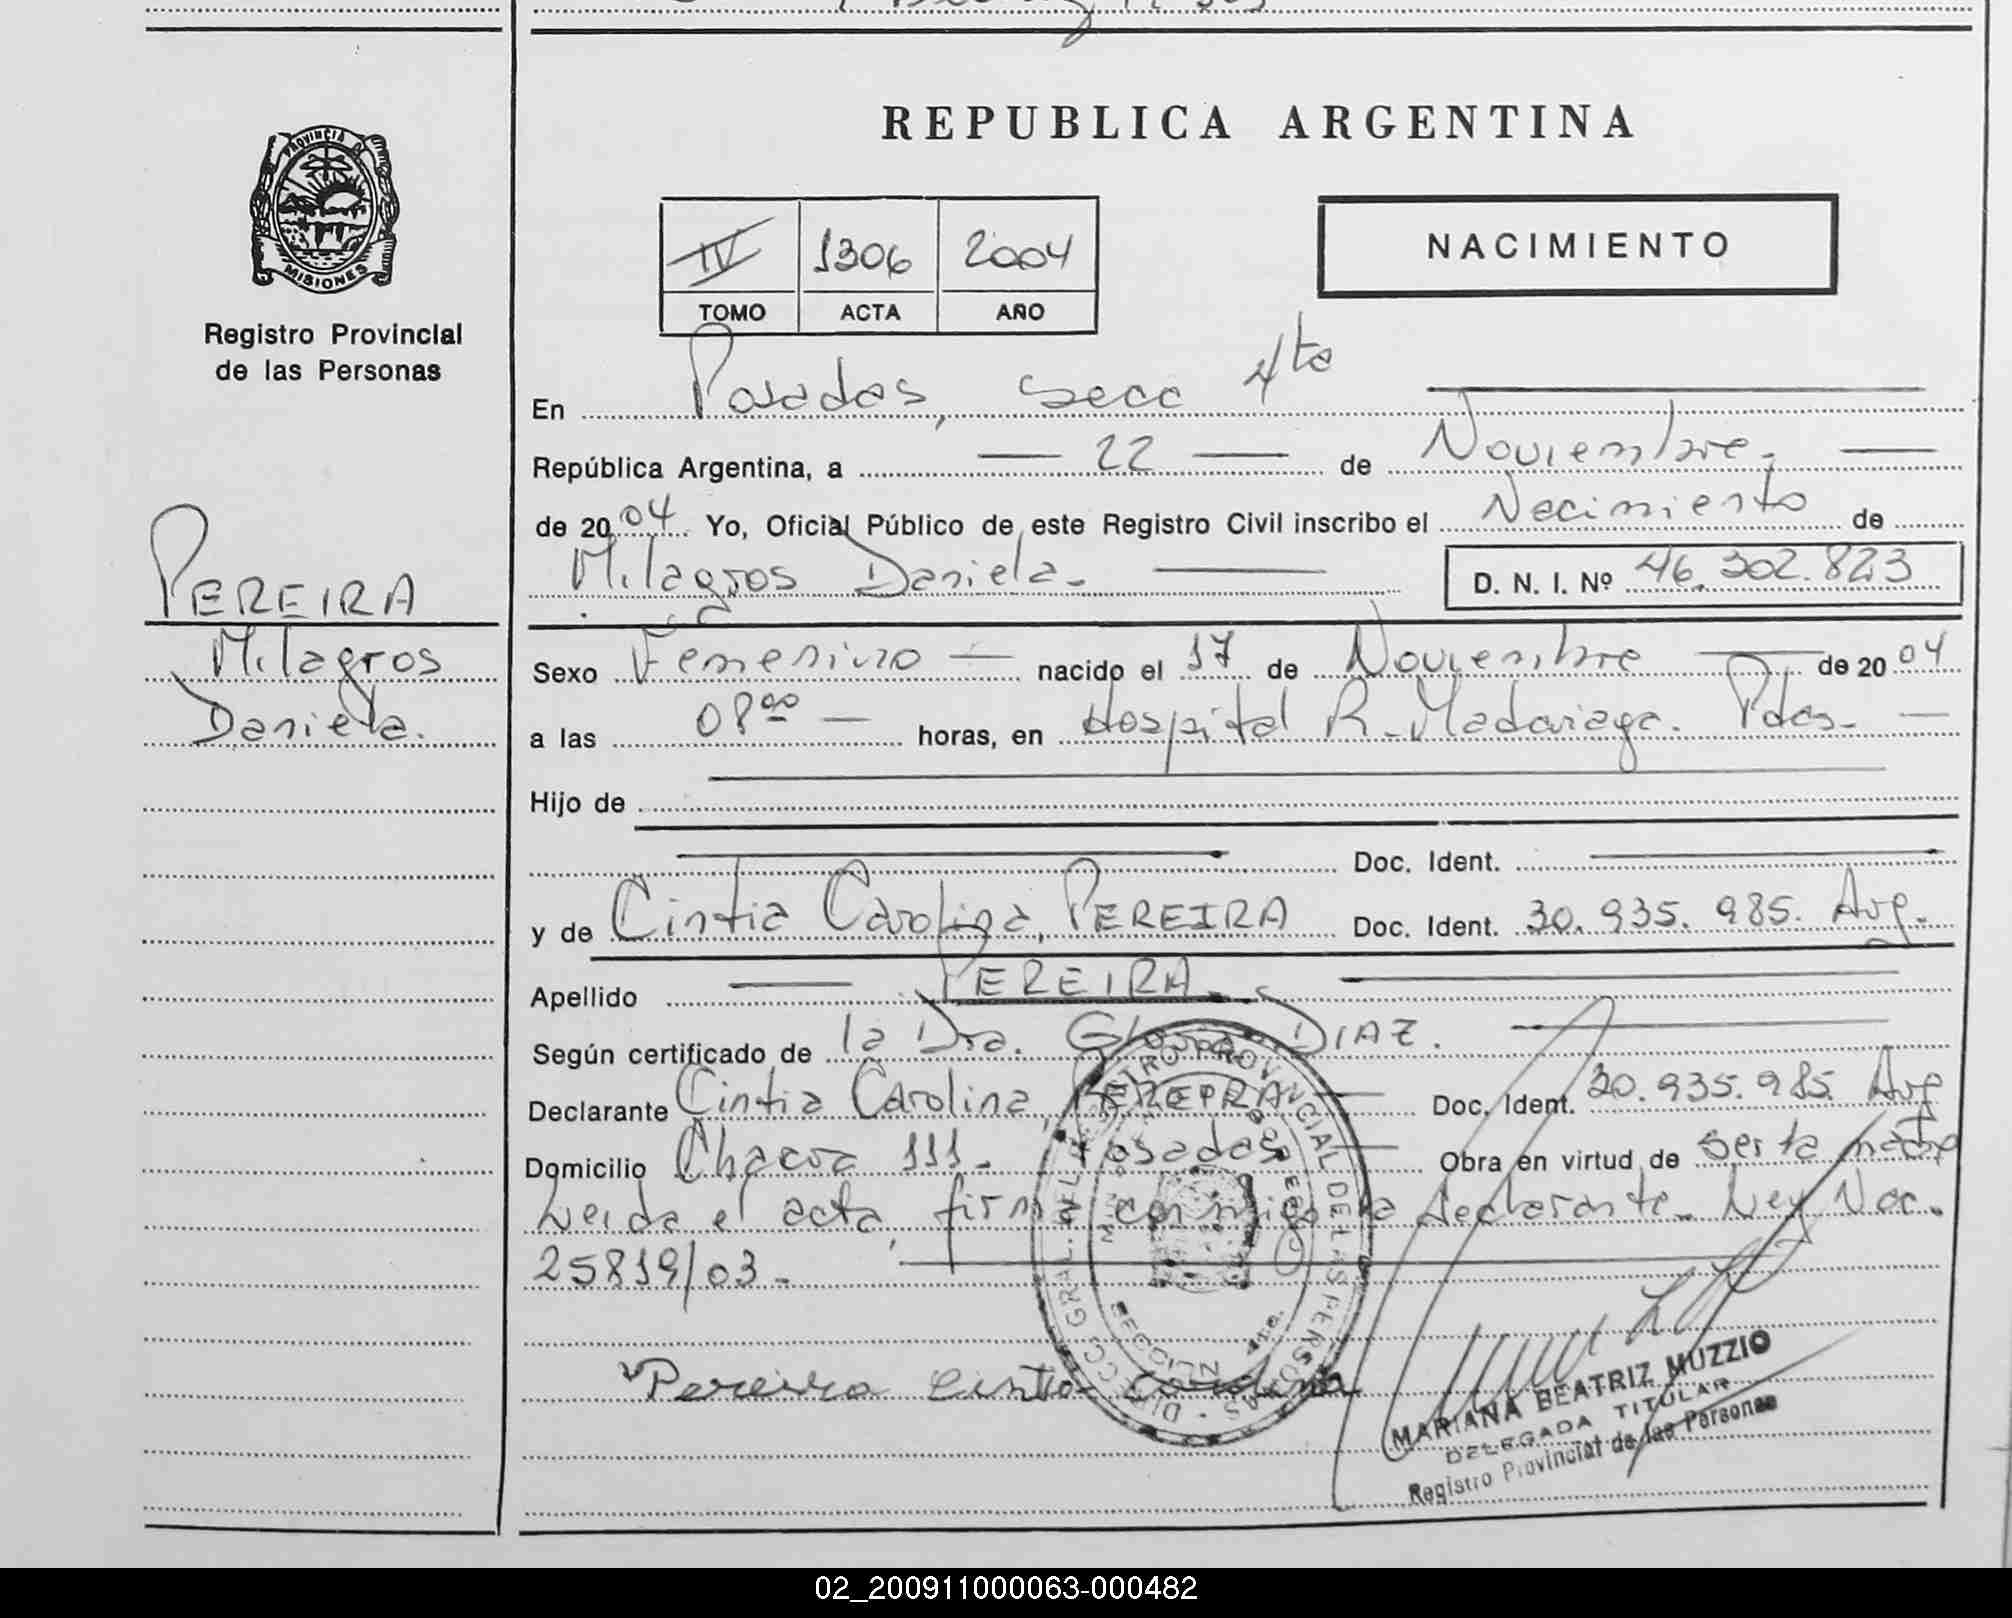 REPUBLICA ARGENTINA
PROVINCIA DE
MISIONES
Registro Provincial
de las Personas
IV 1306 2004
TOMO ACTA AÑO
NACIMIENTO
En Posadas, Secc 4ta
República Argentina, a 22 de Noviembre,
de 2004 Yo, Oficial Público de este Registro Civil inscribo el Nacimiento de
Milagros Daniela.
D. N. I. Nº 46.302.823
PEREIRA
Milagros
Daniela.
Sexo Femenino nacido el 17 de Noviembre de 2004
a las 08⁰⁰ horas, en Hospital R. Madariaga. Pdas.
Hijo de
Doc. Ident.
y de Cintia Carolina, PEREIRA Doc. Ident. 30.935.985. Arg.
Apellido PEREIRA
Según certificado de la Dra. DIAZ.
Declarante Cintia Carolina, PEREIRA Doc. Ident. 30.935.985. Arg
Domicilio Chacra 111. Posadas Obra en virtud de ser la madre
Leida el acta, firma conmigo la declarante. Ley Nac.
25819/03.
Pereira Cintia Carolina
DIRECC. GRAL. DEL REGISTRO PROVINCIAL DE LAS PERSONAS
MARIANA BEATRIZ MUZZIO
DELEGADA TITULAR
Registro Provincial de las Personas
02_200911000063-000482